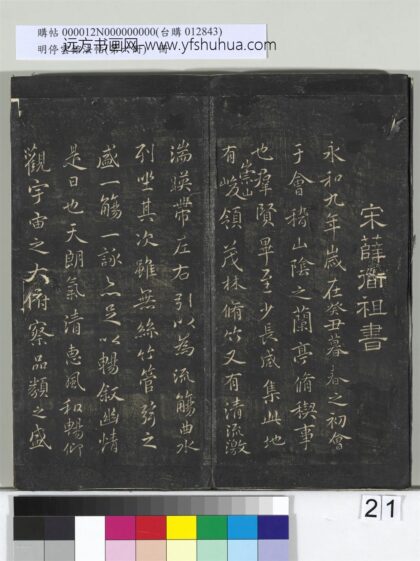 購帖 000012N000000000(台購 012843)
明停雲館法帖
远方书画网-www.yfshuhua.com
宋薛衟祖書
永和九年歲在癸丑暮春之初會
于會稽山陰之蘭亭脩禊事
也羣賢畢至少長咸集此地
有崇山峻領茂林脩竹又有清流激
湍暎帶左右引以為流觴曲水
列坐其次雖無絲竹管弦之
盛一觴一詠亦足以暢敘幽情
是日也天朗氣清惠風和暢仰
觀宇宙之大俯察品類之盛
21